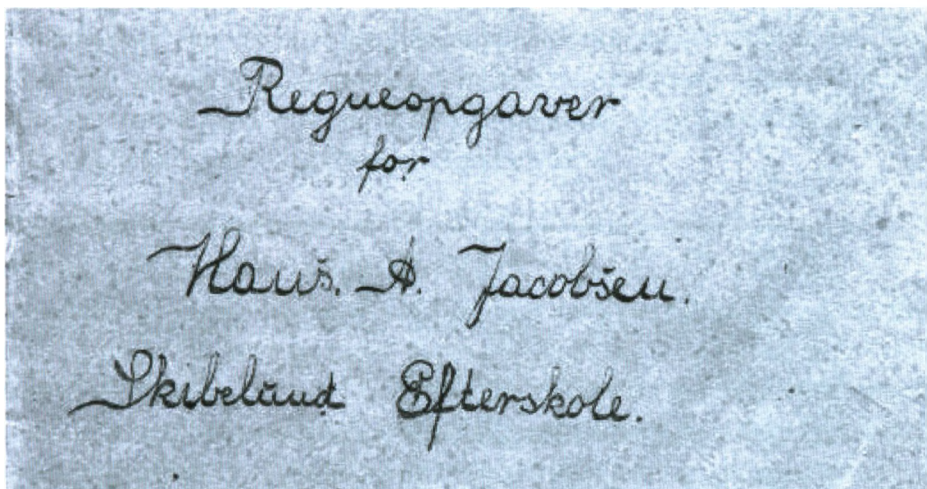 Regneopgaver
for
Hans. A. Jacobsen.
Skibelund Efterskole.